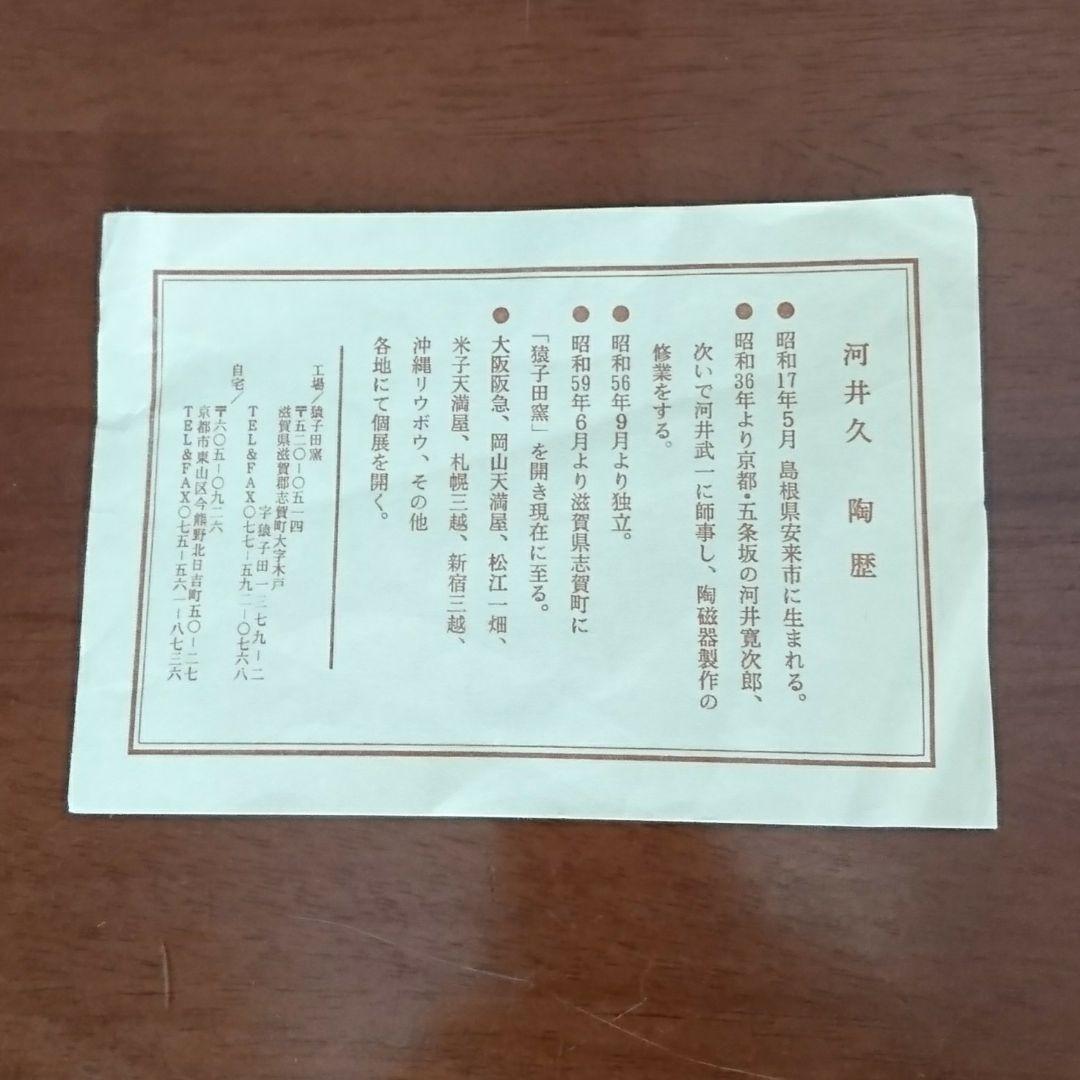 河井久　陶歴
● 昭和17年5月　島根県安来市に生まれる。
● 昭和36年より京都・五条坂の河井寛次郎、
次いで河井武一に師事し、陶磁器製作の
修業をする。
● 昭和56年9月より独立。
● 昭和59年6月より滋賀県志賀町に
「猿子田窯」を開き現在に至る。
● 大阪阪急、岡山天満屋、松江一畑、
米子天満屋、札幌三越、新宿三越、
沖縄リウボウ、その他
各地にて個展を開く。
工場／猿子田窯
〒五二〇－〇五一四
滋賀県滋賀郡志賀町大字木戸
字猿子田一三七九－二
TEL&FAX〇七七－五九二－〇七六八
自宅／
〒六〇五－〇九二六
京都市東山区今熊野北日吉町五〇－二七
TEL&FAX〇七五－五六一－八七三六